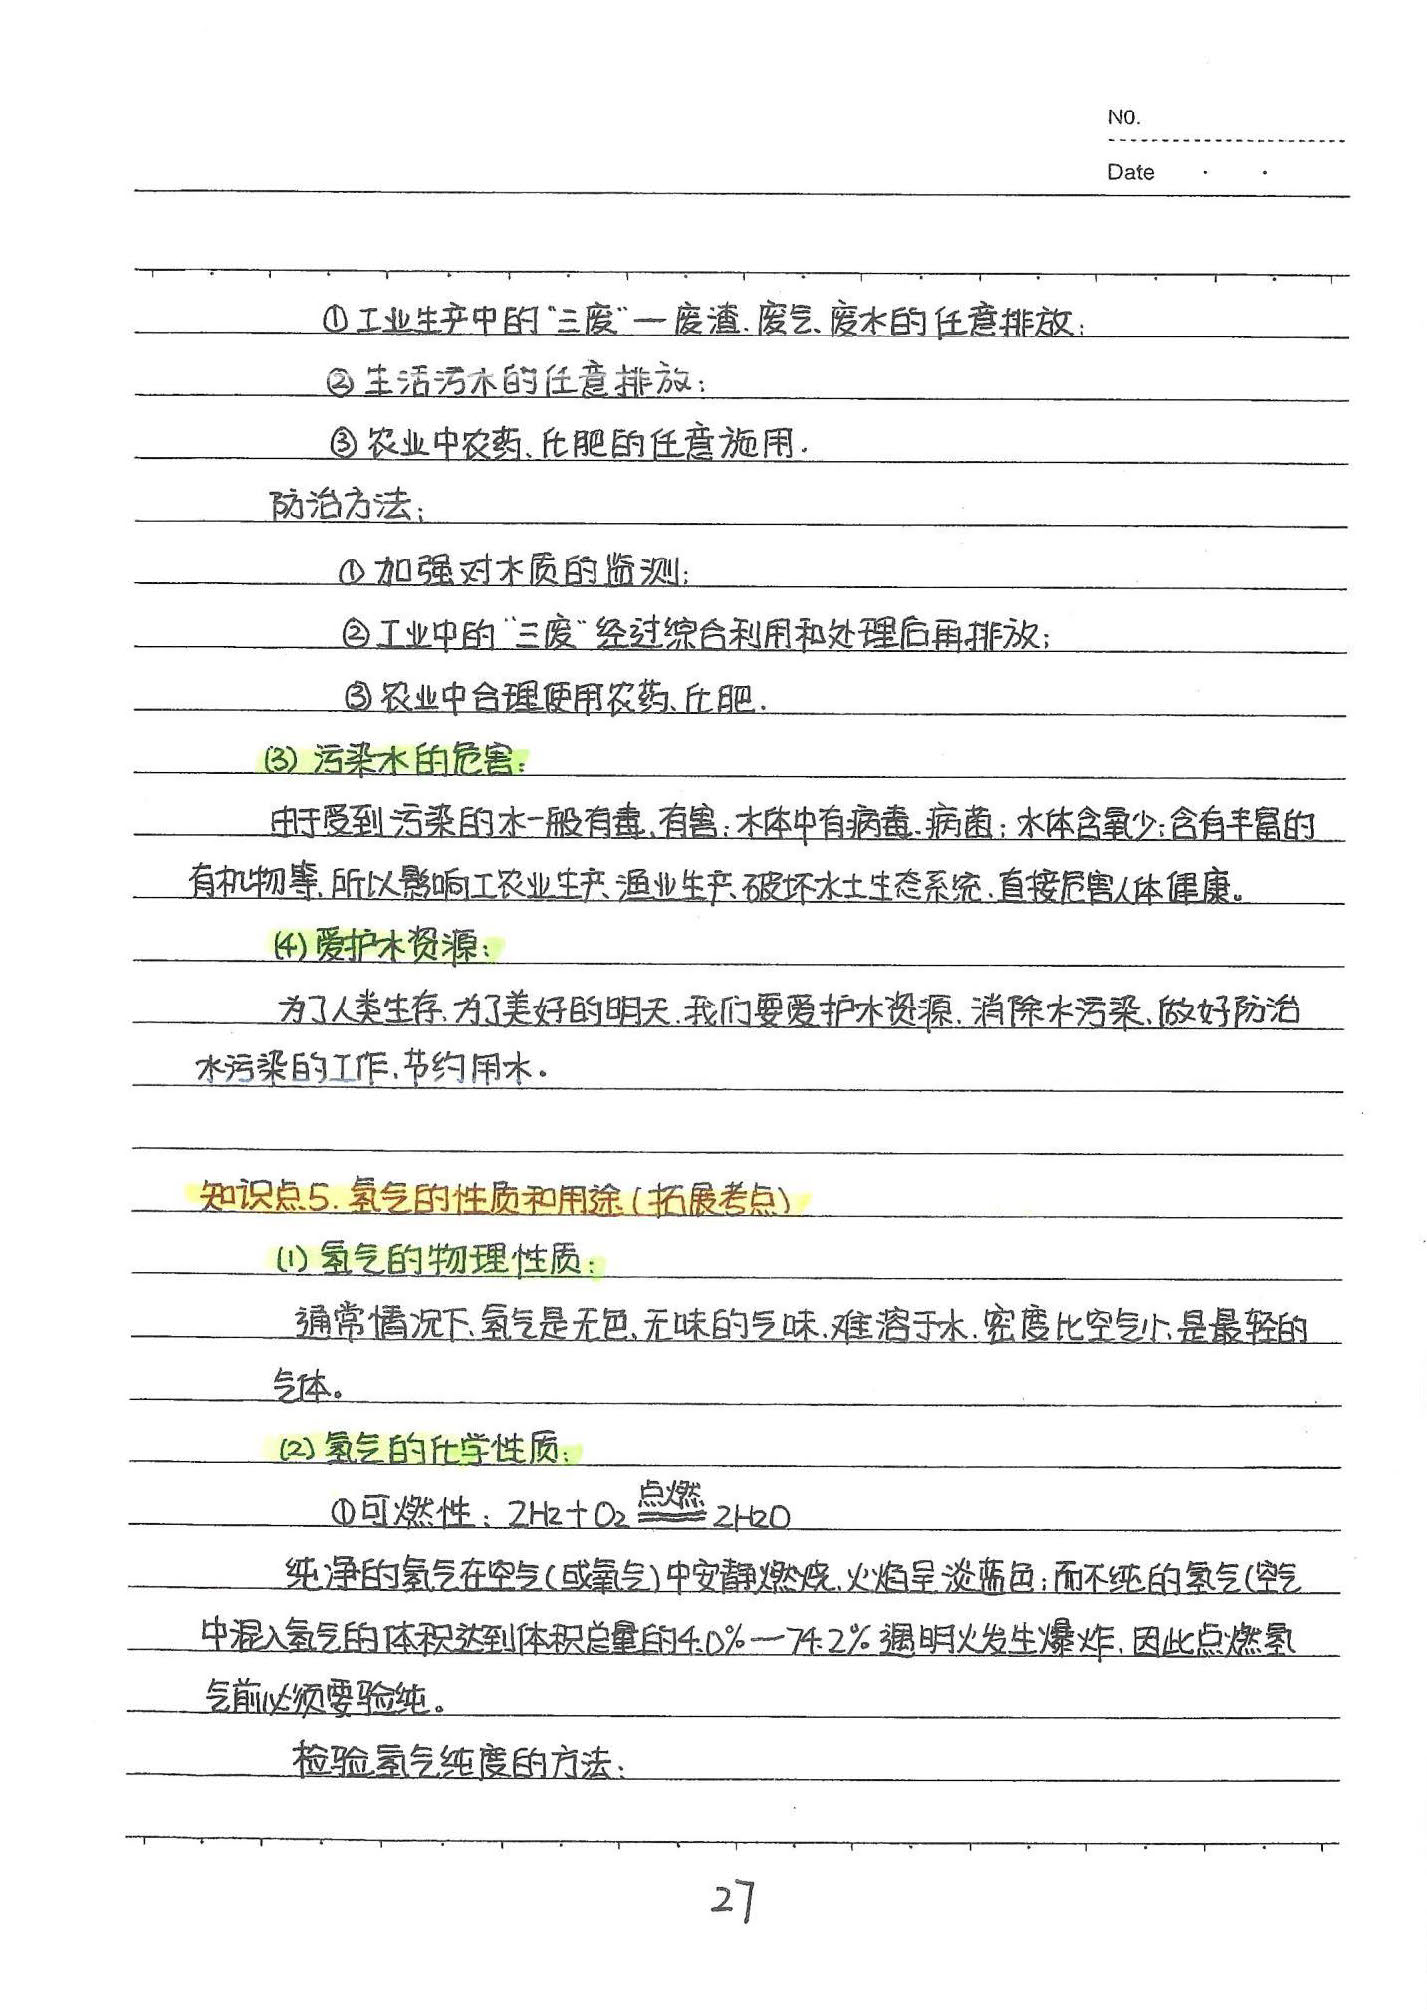 NO.
Date
①工业生产中的“三废”—废渣、废气、废水的任意排放;
②生活污水的任意排放;
③农业中农药、化肥的任意施用.
防治方法:
①加强对水质的监测;
②工业中的“三废”经过综合利用和处理后再排放;
③农业中合理使用农药、化肥.
(3)污染水的危害:
由于受到污染的水一般有毒、有害;水体中有病毒、病菌;水体含氧少;含有丰富的
有机物等,所以影响工农业生产、渔业生产、破坏水土生态系统、直接危害人体健康。
(4)爱护水资源:
为了人类生存,为了美好的明天,我们要爱护水资源,消除水污染,做好防治
水污染的工作,节约用水。
知识点5.氢气的性质和用途(拓展考点)
(1)氢气的物理性质:
通常情况下,氢气是无色、无味的气味,难溶于水,密度比空气小,是最轻的
气体。
(2)氢气的化学性质:
①可燃性: 2H2+O2 点燃 2H2O
纯净的氢气在空气(或氧气)中安静燃烧,火焰呈淡蓝色;而不纯的氢气(空气
中混入氢气的体积达到体积总量的4.0%—74.2%遇明火发生爆炸,因此点燃氢
气前必须要验纯。
检验氢气纯度的方法:
27